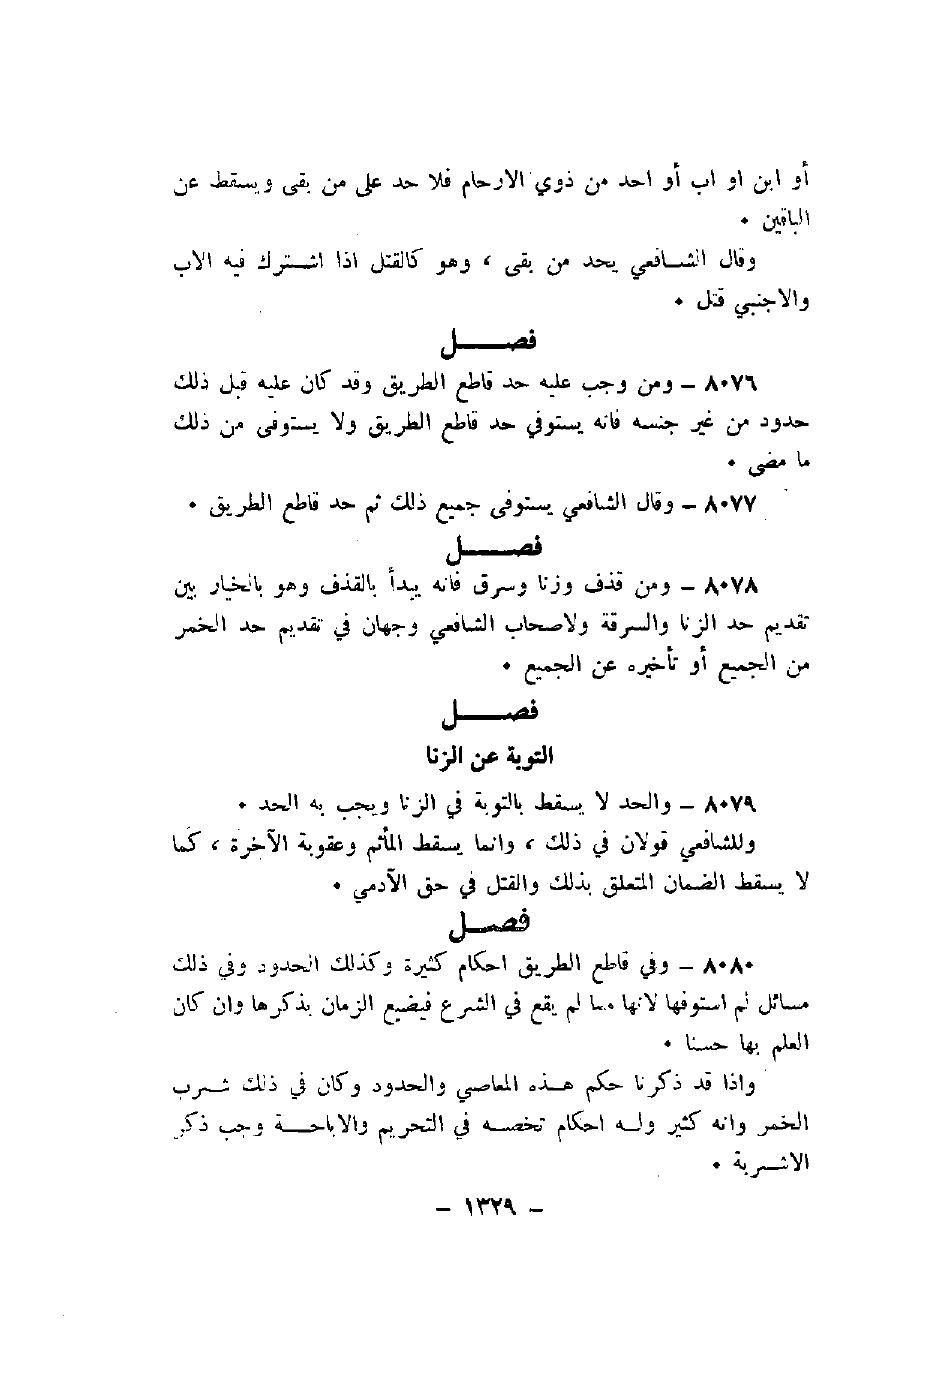 أو ابن او اب أو احد من ذوي الارحام فلا حد على من بقى ويسقط عن
الباقين •
وقال الشافعي يحد من بقى ، وهو كالقتل اذا اشترك فيه الاب
والاجنبي قتل •
فصل
٨٠٧٦ – ومن وجب عليه حد قاطع الطريق وقد كان عليه قبل ذلك
حدود من غير جنسه فانه يستوفي حد قاطع الطريق ولا يستوفى من ذلك
ما مضى •
٨٠٧٧ – وقال الشافعي يستوفى جميع ذلك ثم حد قاطع الطريق •
فصل
٨٠٧٨ – ومن قذف وزنا وسرق فانه يبدأ بالقذف وهو بالخيار بين
تقديم حد الزنا والسرقة ولاصحاب الشافعي وجهان في تقديم حد الخمر
من الجميع أو تأخيره عن الجميع •
فصل
التوبة عن الزنا
٨٠٧٩ – والحد لا يسقط بالتوبة في الزنا ويجب به الحد •
وللشافعي قولان في ذلك ، وانما يسقط المأثم وعقوبة الآخرة ، كما
لا يسقط الضمان المتعلق بذلك والقتل في حق الآدمي •
فصل
٨٠٨٠ – وفي قاطع الطريق احكام كثيرة وكذلك الحدود وفي ذلك
مسائل لم استوفها لانها مما لم يقع في الشرع فيضيع الزمان بذكرها وان كان
العلم بها حسنا •
واذا قد ذكرنا حكم هذه المعاصي والحدود وكان في ذلك شرب
الخمر وانه كثير وله احكام تخصه في التحريم والاباحة وجب ذكر
الاشربة •
– ١٣٢٩ –